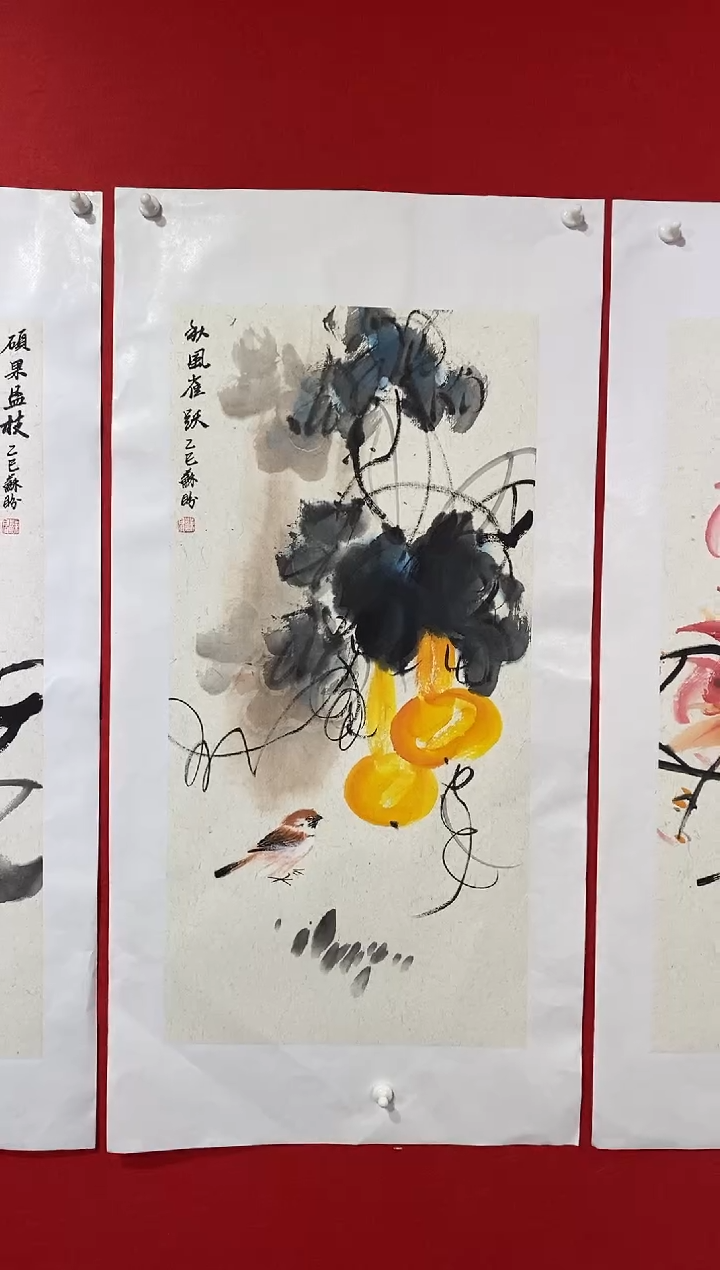 秋風雀跃
乙巳蘇盼
碩果盈枝
乙巳蘇盼